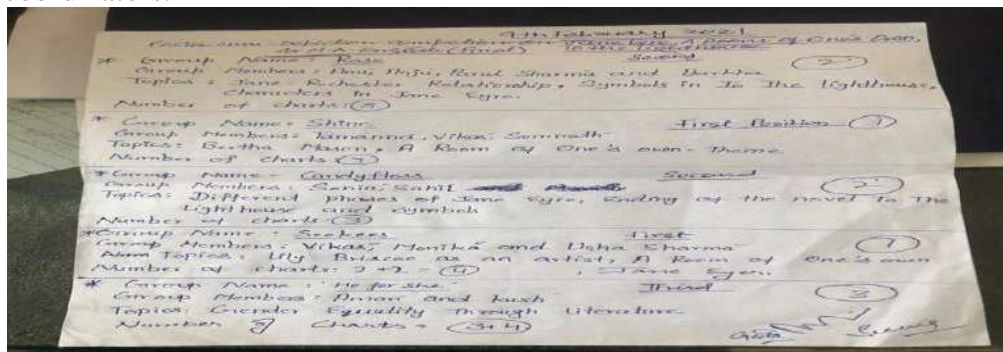 9th February 2021
Poster cum Depiction Competition on Jane Eyre, A Room of One's Own,
M.A. English (Final) To the Lighthouse
* Group Name: Rose Second 2
Group Members: Anu, Anju, Parul Sharma and Barkha
Topics: Jane Rochester Relationship, Symbols in To The Lighthouse,
Characters in Jane Eyre.
Number of charts: 5
* Group Name: First Position 1
Group Members: Tamanna, Vikas, Somnath
Topics: Bertha Mason, A Room of One's own - Theme
Number of charts
* Group Name - Candyfloss Second 2
Group Members: Sonia, Sahil
Topics: Different phases of Jane Eyre, Ending of the novel To The
Lighthouse and symbols
Number of charts: 3
* Group Name: Seekers First 1
Group Members: Vikas, Monika and Usha Sharma
Topics: Lily Briscoe as an artist, A Room of One's own
Number of charts: 2+2 = 4 , Jane Eyre.
* Group Name: 'He for She' Third 3
Group Members: Aman and kush
Topics: Gender Equality through Literature
Number of Charts = 3+4